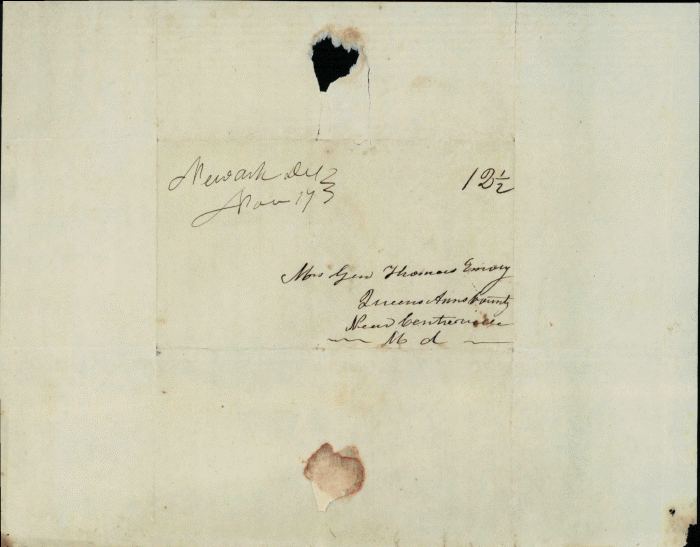 Newark Del
Nov 17
12½
Mrs Gen Thomas Emory
Queens Anns County
Near Centreville
Md